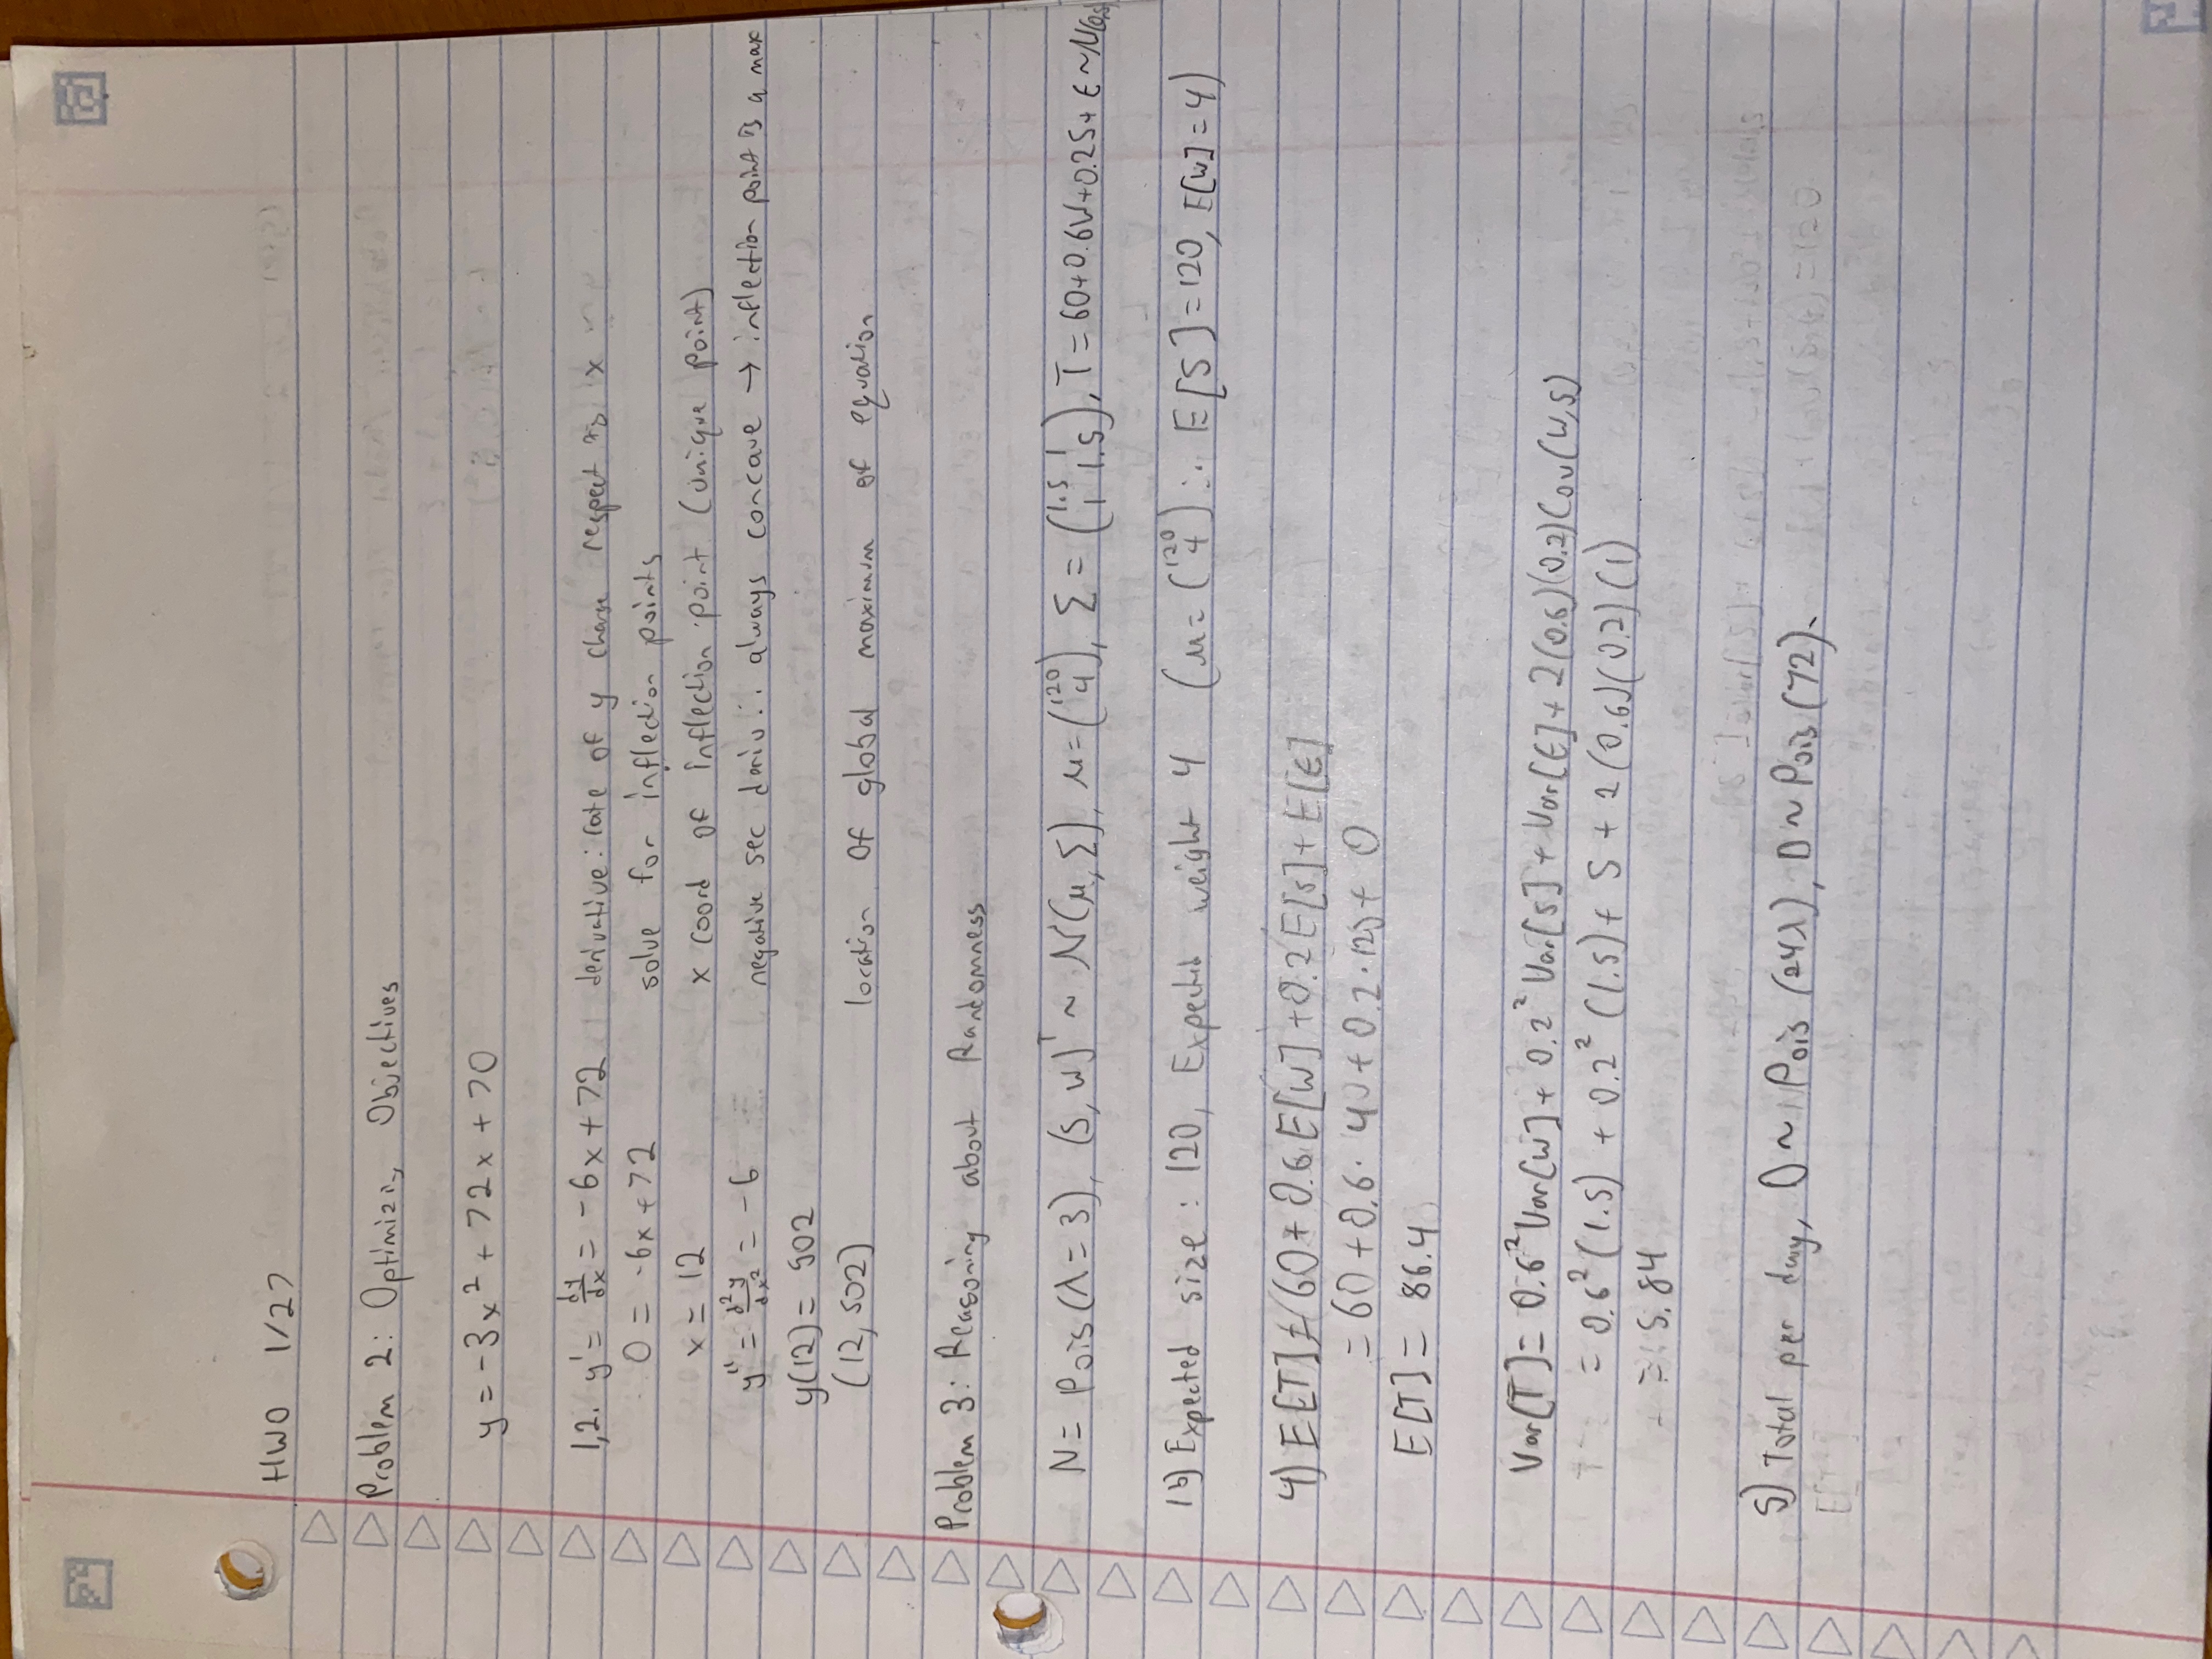 HW0 1/27
Problem 2: Optimizing Objectives
y = -3x² + 72x + 70
1,2. y' = dy/dx = -6x + 72 derivative: rate of y change respect to x
0 = -6x + 72 solve for inflection points
x = 12 x coord of inflection point (unique point)
y'' = d²y/dx² = -6 negative sec deriv ∴ always concave → inflection point is a max
y(12) = 502
(12, 502) location of global maximum of equation
Problem 3: Reasoning about Randomness
N = Pois(λ = 3), (S, W)ᵀ ~ N(μ, Σ), μ = (120 4), Σ = (1.5 1 1 1.5), T = 60 + 0.6W + 0.2S + ε ~ N(0,5)
1b) Expected size: 120, Expected weight 4 (μ = (120 4) ∴ E[S] = 120, E[W] = 4)
4) E[T] = 60 + 0.6 E[W] + 0.2 E[S] + E[ε]
= 60 + 0.6 · 4 + 0.2 · 120 + 0
E[T] = 86.4
Var[T] = 0.6² Var[W] + 0.2² Var[S] + Var[ε] + 2(0.6)(0.2) Cov(W,S)
= 0.6² (1.5) + 0.2² (1.5) + 5 + 2(0.6)(0.2)(1)
= 5.84
5) Total per day, D ~ Pois(24λ), D ~ Pois(72).